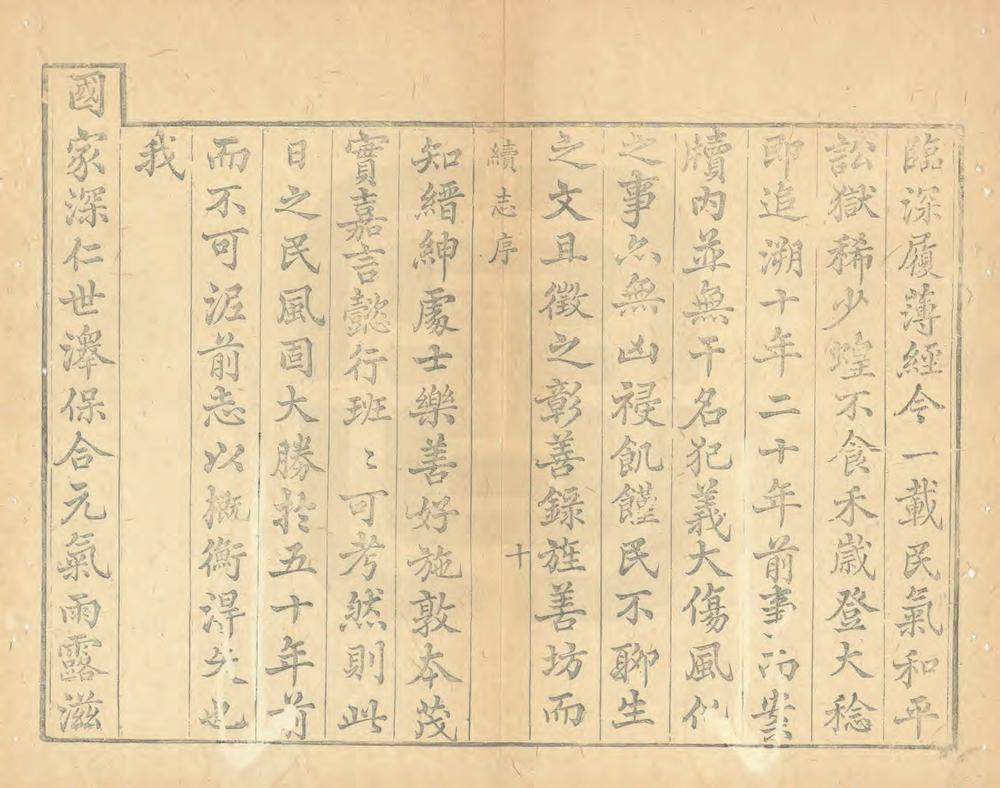 臨深履薄經今一載民氣和平
訟獄稀少蝗不食禾歲登大稔
即追溯十年二十年前事而案
牘內並無干名犯義大傷風化
之事亦無凶祲飢饉民不聊生
之文且徵之彰善錄旌善坊而
續志序 十
知縉紳處士樂善好施敦本茂
實嘉言懿行班〻可考然則此
日之民風固大勝於五十年前
而不可泥前志以概衡淂失也
我
國家深仁世澤保合元氣雨露滋